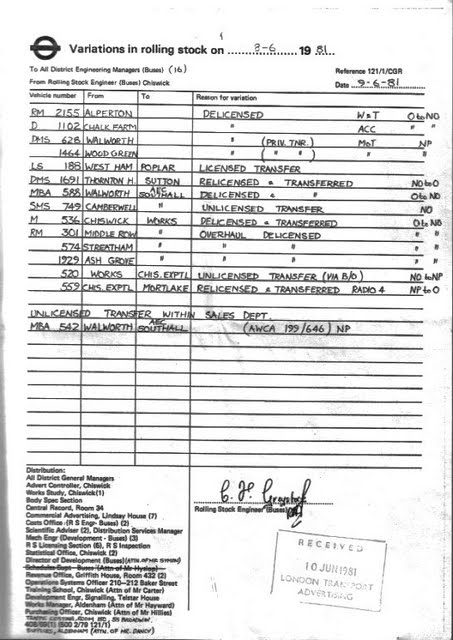 Variations in rolling stock on 8-6 1981
To All District Engineering Managers (Buses) (16)
Reference 121/1/CGR
From Rolling Stock Engineer (Buses) Chiswick
Date 9-6-81
Vehicle number From To Reason for variation
RM 2155 ALPERTON DELICENSED W&T O to NO
D 1102 CHALK FARM " ACC " "
DMS 628 WALWORTH " (PRIV. TNR.) MOT NP
1464 WOOD GREEN " ( " " ) " "
LS 188 WEST HAM POPLAR LICENSED TRANSFER
DMS 1691 THORNTON H. SUTTON RELICENSED & TRANSFERRED NO to O
MBA 588 WALWORTH AEC SOUTHALL DELICENSED & " O to NO
SMS 749 CAMBERWELL " UNLICENSED TRANSFER NO
M 536 CHISWICK WORKS DELICENSED & TRANSFERRED O to NO
RM 301 MIDDLE ROW " OVERHAUL DELICENSED " "
574 STREATHAM " " " " "
1929 ASH GROVE " " " " "
520 WORKS CHIS. EXPTL UNLICENSED TRANSFER (VIA B/O) NO to NP
559 CHIS. EXPTL MORTLAKE RELICENSED & TRANSFERRED RADIO 4 NP to O
UNLICENSED TRANSFER WITHIN SALES DEPT.
MBA 542 WALWORTH AEC SOUTHALL (AWCA 199/646) NP
Distribution:
All District General Managers
Advert Controller, Chiswick
Works Study, Chiswick (1)
Body Spec Section
Central Record, Room 34
Commercial Advertising, Lindsay House (7)
Costs Office (R S Engr- Buses) (2)
Scientific Adviser (2), Distribution Services Manager
Mech Engr (Development - Buses) (3)
R S Licensing Section (5), R S Inspection
Statistical Office, Chiswick (2)
Director of Development (Buses) (ATTN OF MR
Schedules Dept - Buses (Attn of Mr Hyslop)
Revenue Office, Griffith House, Room 432 (2)
Operations Systems Officer 210-212 Baker Street
Training School, Chiswick (Attn of Mr Carter)
Development Engr, Signalling, Telstar House
Works Manager, Aldenham (Attn of Mr Hayward)
Purchasing Officer, Chiswick (Attn of Mr Hillies)
55 BROADWAY
408/59(1) (500 2/79 121/1)
ALDENHAM (ATTN. OF MR.
Rolling Stock Engineer (Buses)
RECEIVED
10 JUN 1981
LONDON TRANSPORT
ADVERTISING